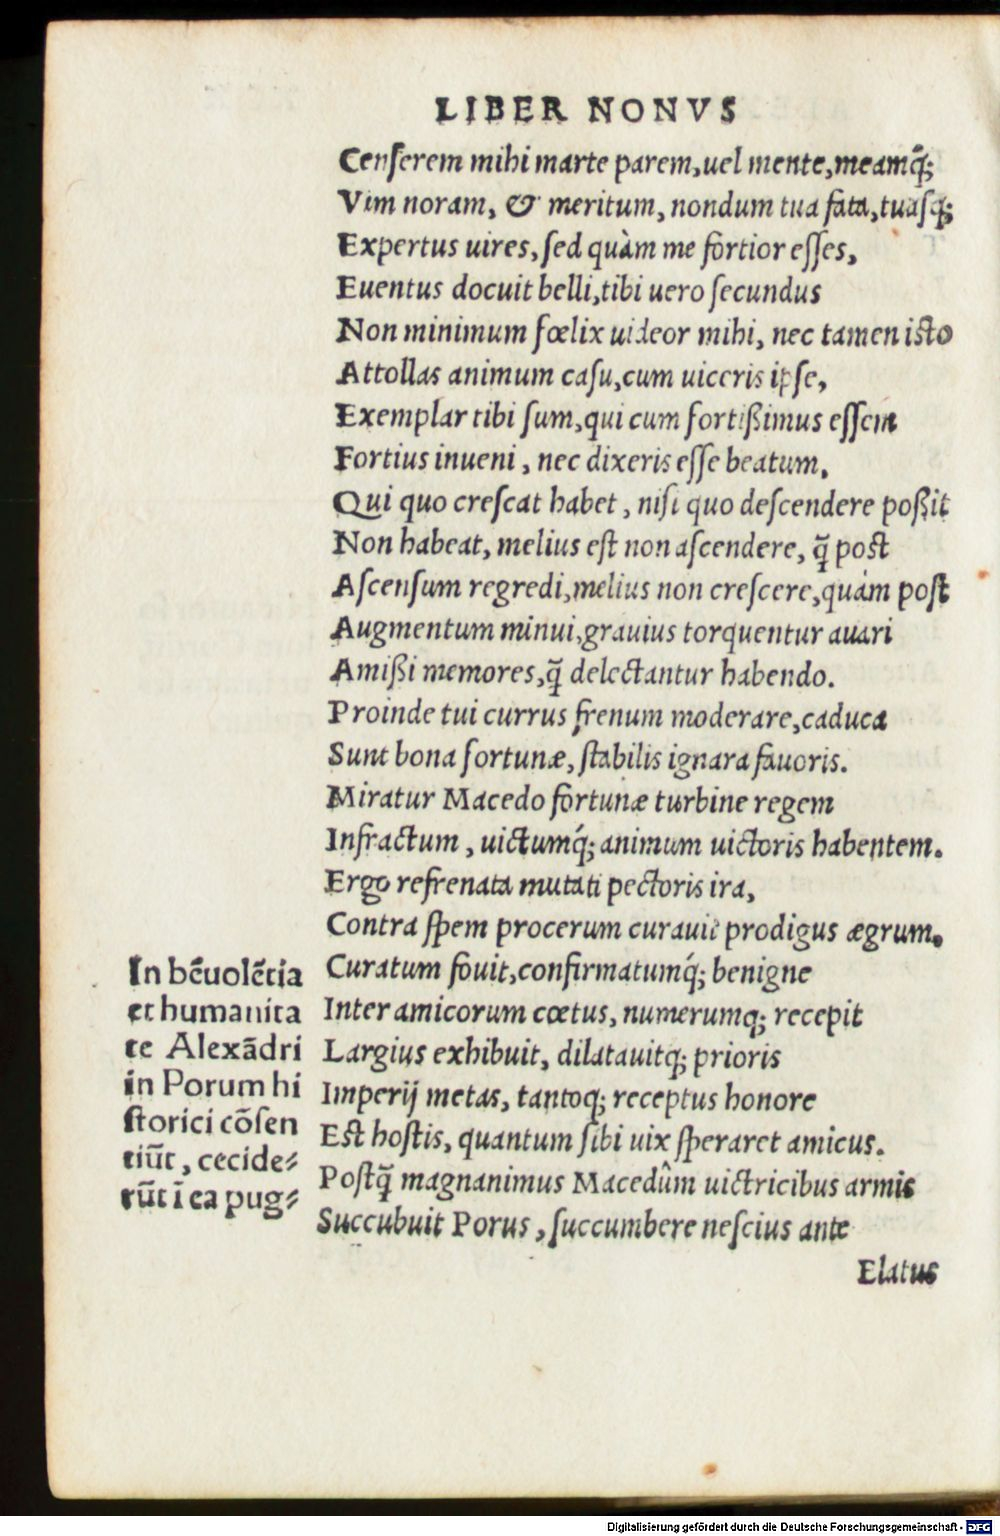 LIBER NONVS
Cenſerem mihi marte parem,uel mente,meamq̃;
Vim noram, & meritum, nondum tua fata,tuasq;
Expertus uires, ſed quàm me fortior eſſes,
Euentus docuit belli,tibi uero ſecundus
Non minimum fœlix uideor mihi, nec tamen iſto
Attollas animum caſu,cum uiceris ipſe,
Exemplar tibi ſum,qui cum fortißimus eſſem
Fortius inueni, nec dixeris eſſe beatum,
Qui quo creſcat habet, niſi quo deſcendere poßit
Non habeat, melius eſt non aſcendere, q̃ poſt
Aſcenſum regredi,melius non creſcere,quàm poſt
Augmentum minui,grauius torquentur auari
Amißi memores,q̃ delectantur habendo.
Proinde tui currus frenum moderare,caduca
Sunt bona fortunæ, ſtabilis ignara fauoris.
Miratur Macedo fortunæ turbine regem
Infractum, uictumq́; animum uictoris habentem.
Ergo refrenata mutati pectoris ira,
Contra ſpem procerum curauit prodigus ægrum,
Curatum fouit,confirmatumq́; benigne
Inter amicorum cœtus, numerumq; recepit
Largius exhibuit, dilatauitq; prioris
Imperij metas, tantoq; receptus honore
Eſt hoſtis, quantum ſibi uix ſperaret amicus.
Poſtq̃ magnanimus Macedûm uictricibus armis
Succubuit Porus, ſuccumbere neſcius ante
Elatus
In bẽuolẽtia
et humanita
te Alexãdri
in Porum hi
ſtorici cõſen
tiũt, cecide⸗
rũt ĩ ea pug⸗
Digitalisierung gefördert durch die Deutsche Forschungsgemeinschaft - DFG